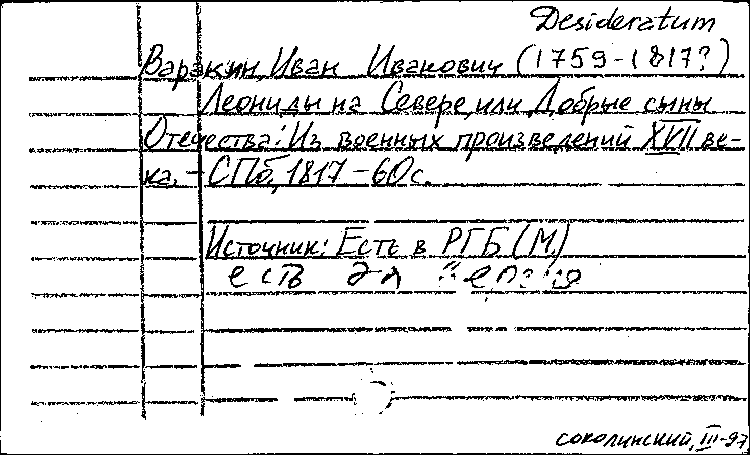 Desideratum
Варакин, Иван Иванович (1759-1817?)
Леониды на Севере, или Добрые сыны
Отечества: Из военных произведений XVII ве-
ка. - СПб, 1817 - 60с.
Источник: Есть в РГБ (М.)
есть
соколинский, III-97